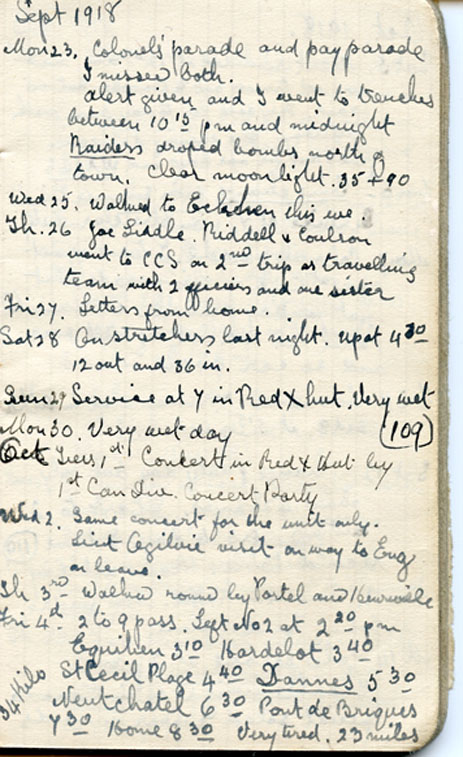 Sept 1918
Mon 23. Colonel's parade and pay parade
I missed both.
Alert given and I went to trenches
between 10 15 pm and midnight
Raiders droped bombs north of
town. Clear moonlight. 35 + 90
Wed 25. Walked to this eve.
Th. 26 Joe Liddle. Riddell & Coulson
went to CCS on 2nd trip as travelling
team with 2 officers and one sister
Fri 27. Letters from home.
Sat 28 On stretchers last night. up at 4 30
12 out and 36 in.
Sun 29 Service at 7 in Red X hut. Very wet
Mon 30. Very wet day (109)
Oct Tues 1st Concert in Red X Hut by
1st Can Div. Concert Party
Wed 2. Same concert for the unit only.
Lieut Ogilvie visit on way to Eng
on leave.
Th 3rd Walked round by Portel and
Fri 4th 2 to 9 pass. Left No 2 at 2 20 pm
Equihen 3 10 Hardelot 3 40
St Cecil Plage 4 40 Dannes 5 30
Neufchatel 6 30 Pont de Briques
7 30 Home 8 30 Very tired. 23 miles
34 Kilo